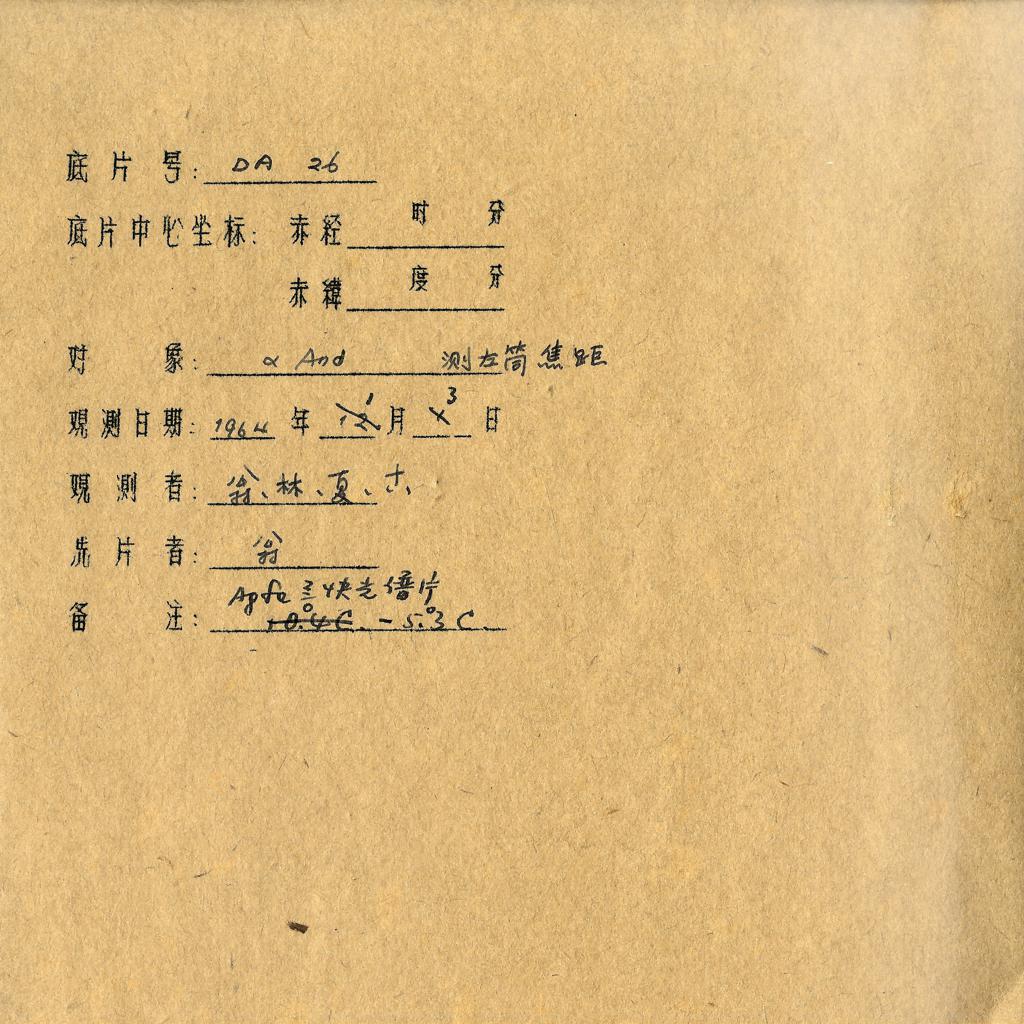 底片号: DA 26
底片中心坐标: 赤经 时 分
赤緯 度 分
对 象: α And 测左筒焦距
观测日期: 1964 年 1 月 3 日
观测者: 翁、林、夏、
洗片者: 翁
Agfa
备 注: +0.4°C. -5.°3 C.